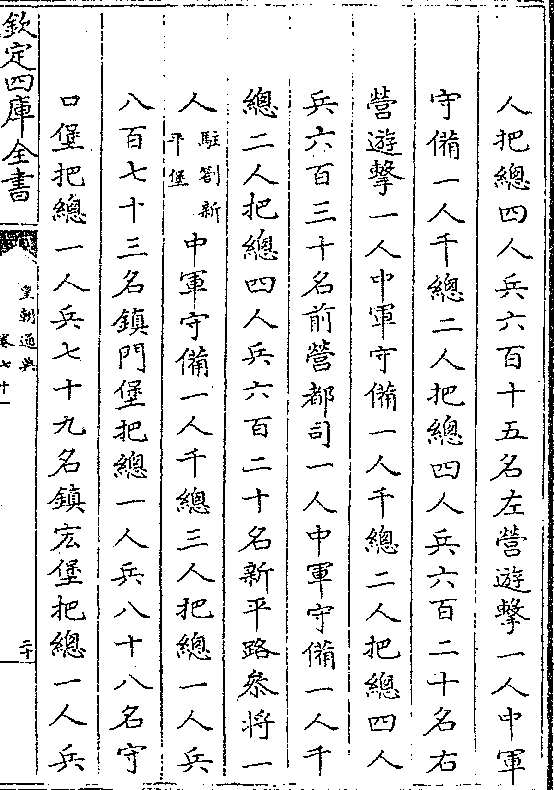 人把總四人兵六百十五名左營遊擊一人中軍
守備一人千總二人把總四人兵六百二十名右
營遊擊一人中軍守備一人千總二人把總四人
兵六百三十名前營都司一人中軍守備一人千
總二人把總四人兵六百二十名新平路叅將一
人駐劄新平堡中軍守備一人千總三人把總一人兵
八百七十三名鎮門堡把總一人兵八十八名守
口堡把總一人兵七十九名鎮宏堡把總一人兵
欽定四庫全書
皇朝通典
卷七十
二十